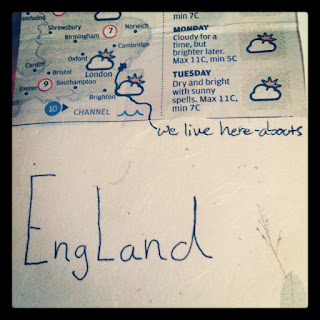 min 7C
Shrewsbury
Norwich
7
Birmingham
Cambridge
Oxford
Cardiff
London
Bristol
9
Southampton
Exeter
Brighton
10
CHANNEL
MONDAY
Cloudy for a
time, but
brighter later.
Max 11C, min 5C
TUESDAY
Dry and bright
with sunny
spells. Max 11C,
min 7C
we live here-abouts
EngLand